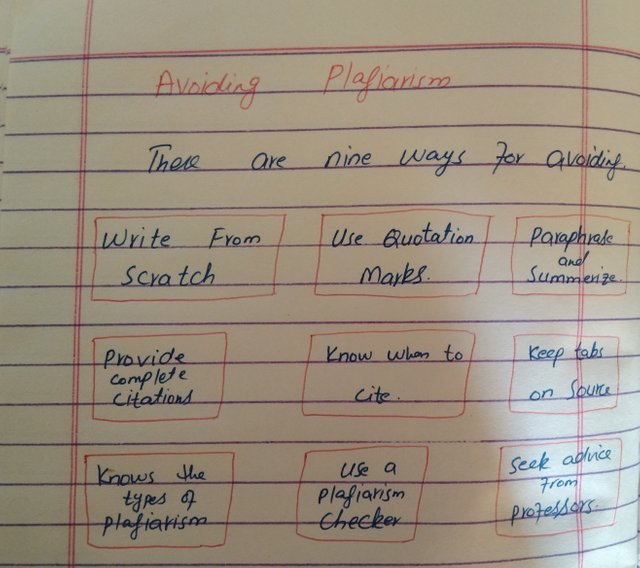 Avoiding Plagiarism
There are nine ways for avoiding.
Write From
Scratch
Use Quotation
Marks.
Paraphrase
and
Summerize.
Provide
complete
Citations
Know when to
cite.
Keep tabs
on Source.
Knows the
types of
plagiarism
Use a
Plagiarism
Checker
Seek advice
From
professors.